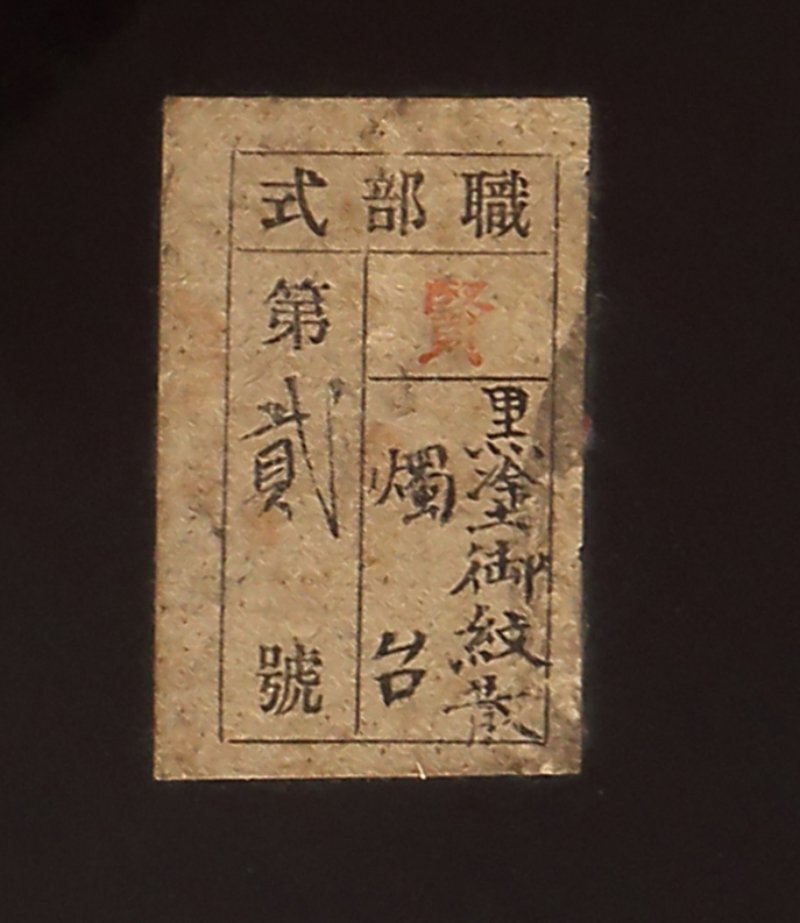 式部職
賢
黒塗御紋散
燭台
第貳號